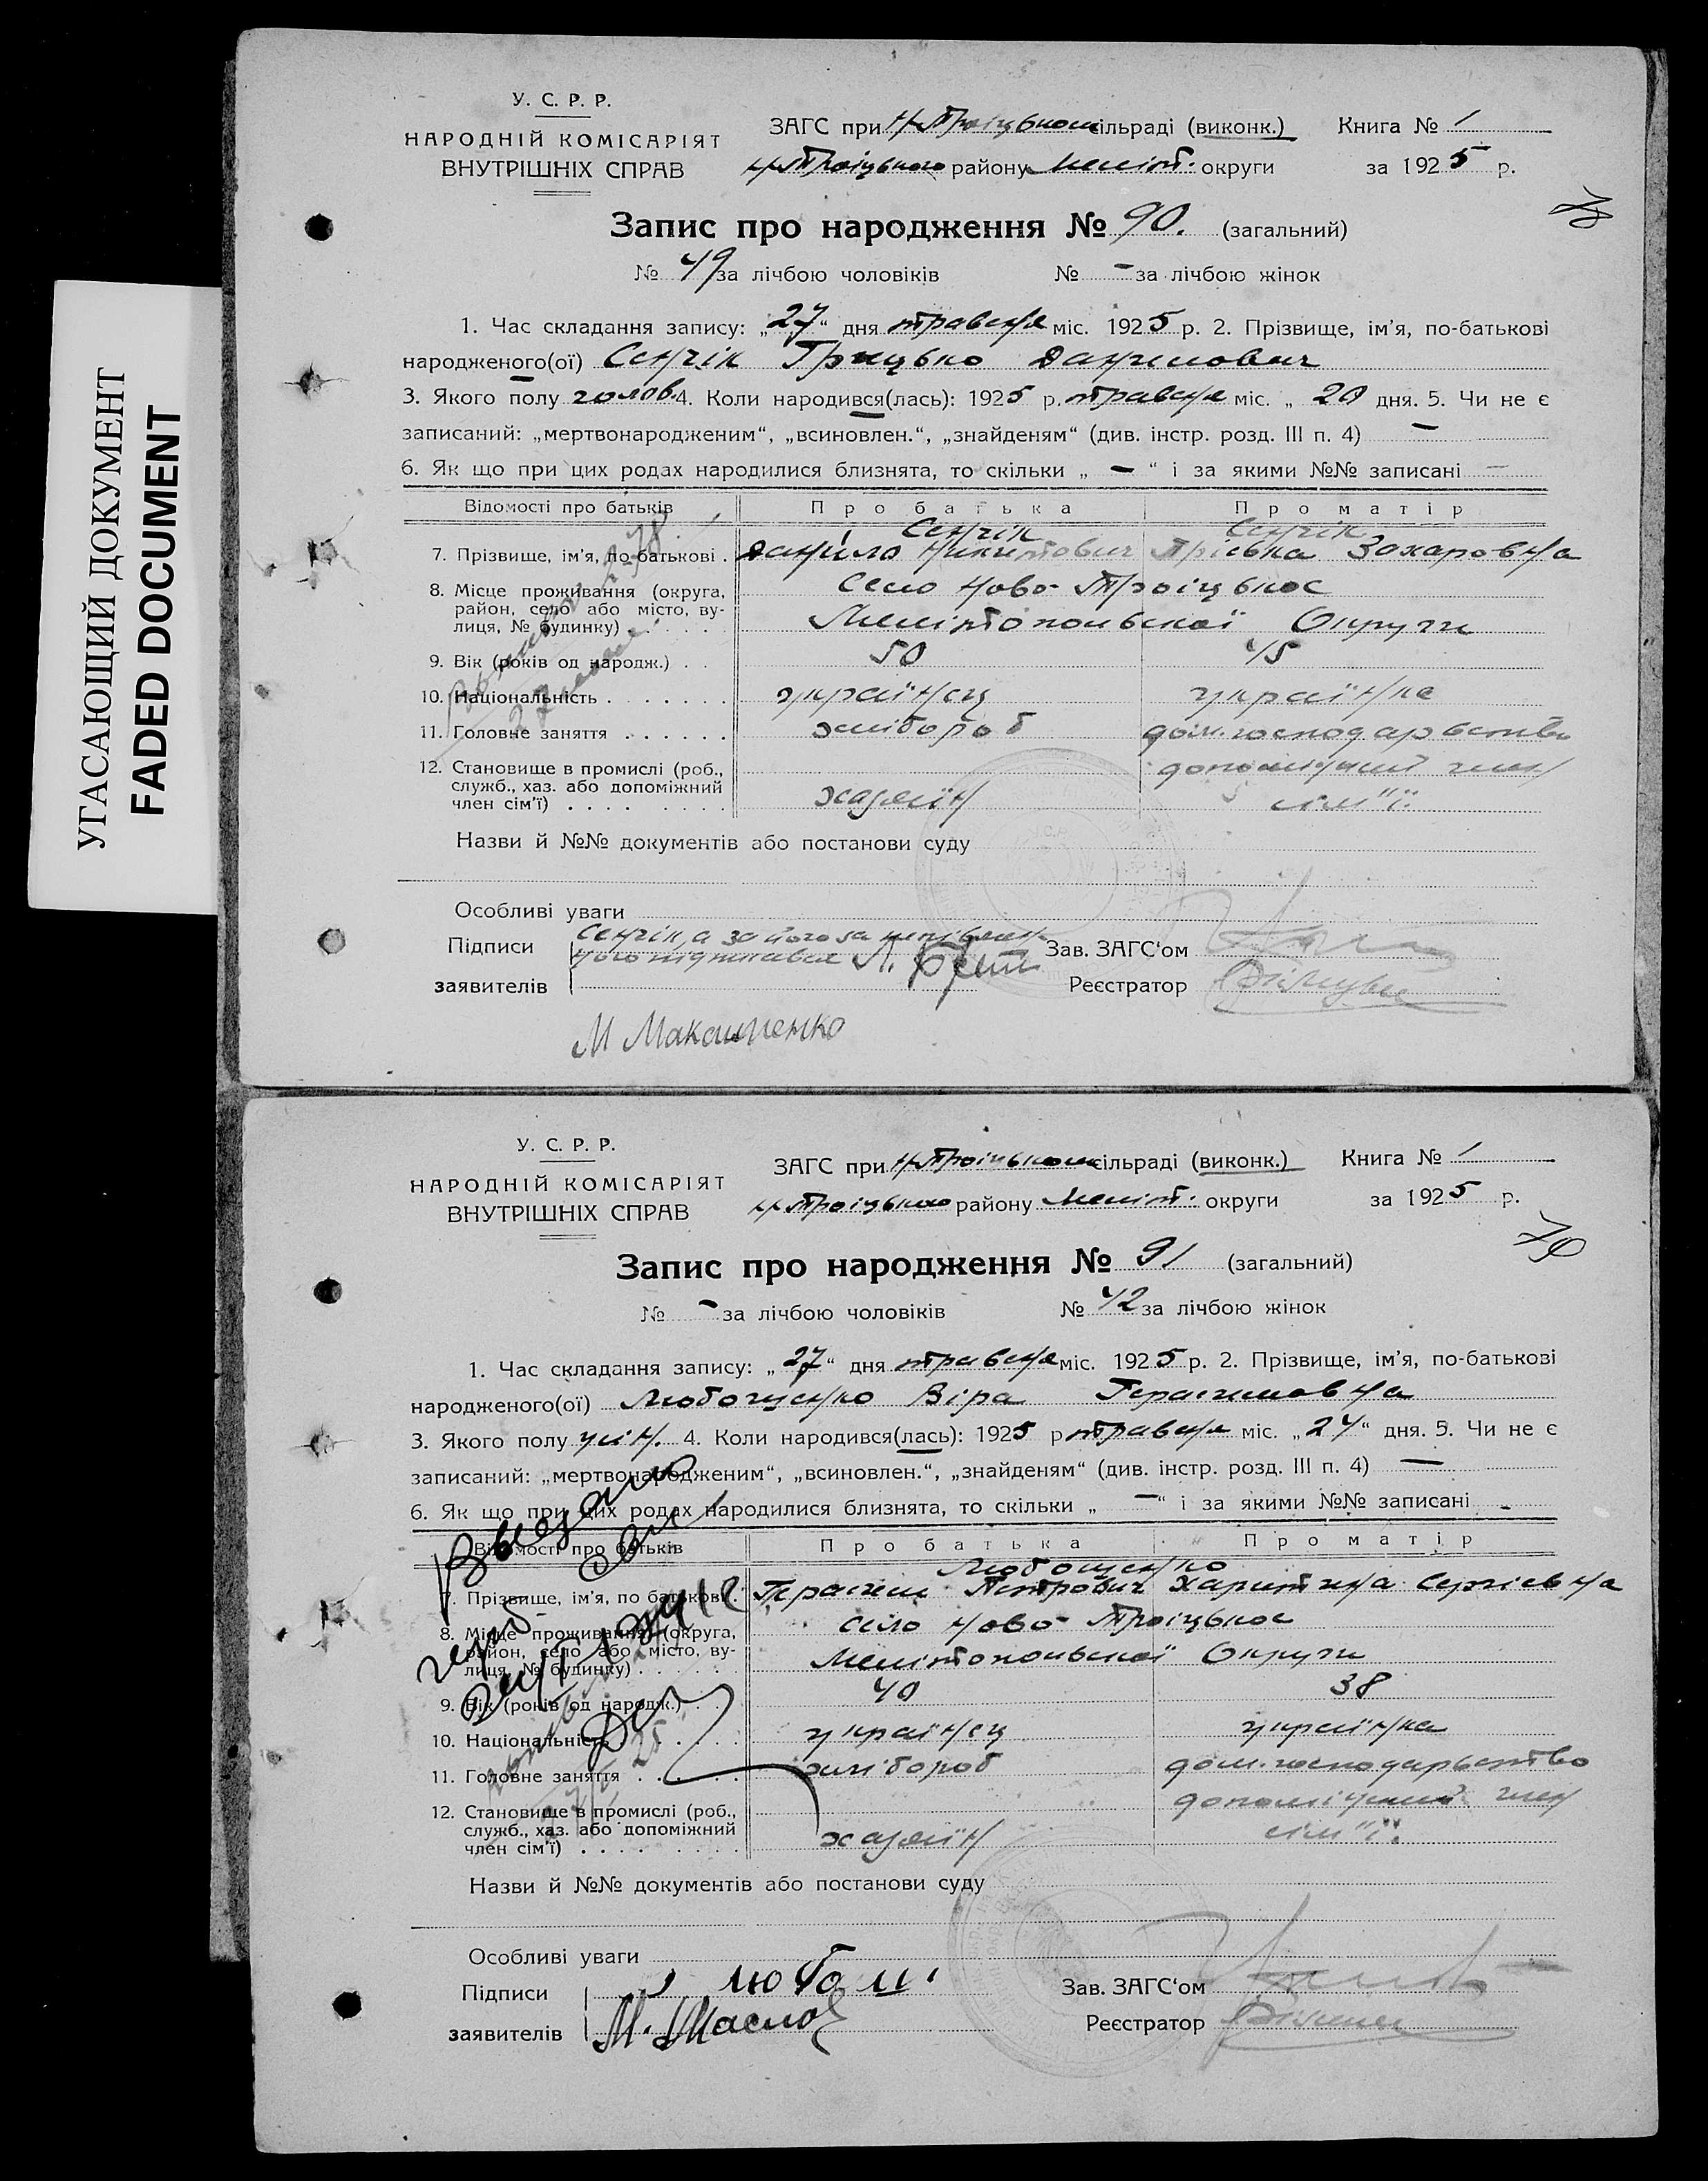 УГАСАЮЩИЙ ДОКУМЕНТ
FADED DOCUMENT
У. С. Р. Р.
НАРОДНІЙ КОМІСАРІЯТ
ВНУТРІШНІХ СПРАВ
ЗАГС при Н-Троіцьком сільраді (виконк.) Книга № 1
Н-Троіцького району Меліт. округи за 1925 р.
78
Запис про народження № 90. (загальний)
№ 49 за лічбою чоловіків № – за лічбою жінок
1. Час складання запису: „27“ дня травеня міс. 1925 р. 2. Прізвище, ім’я, по-батькові
народженого(ої) Сенчік Грицько Данилович
3. Якого полу чолов. 4. Коли народився(лась): 1925 р. травеня міс. „ 20 дня. 5. Чи не є
записаний: „мертвонародженим“, „всиновлен.“, „знайденям“ (див. інстр. розд. III п. 4) —
6. Як що при цих родах народилися близнята, то скільки „ – “ і за якими №№ записані –
Відомості про батьків Про батька Про матір
Сенчік Сенчік
7. Прізвище, ім’я, по-батькові . Данило Никитович Пріська Захаровна
8. Місце проживання (округа, район, село або місто, вулиця, № будинку) . . . . . Село Ново-Троіцькое
Мелітопольскої Округи
9. Вік (років од народж.) . . 50 45
10. Національність . . . . . . . українец українка
11. Головне заняття . . . . . . хлібороб дом. господарство
12. Становище в промислі (роб., служб., хаз. або допоміжний член сім’ї) . . . . . . . . хазяїн допоміжний член
сім"ї.
Назви й №№ документів або постанови суду
Особливі уваги
Підписи Сенчік, а за його
заявителів
Зав. ЗАГС‘ом
Реєстратор
М Максименко
У. С. Р. Р.
НАРОДНІЙ КОМІСАРІЯТ
ВНУТРІШНІХ СПРАВ
ЗАГС при Н-Троіцьком сільраді (виконк.) Книга № 1
Н-Троіцького району Меліт. округи за 1925 р.
79
Запис про народження № 91 (загальний)
№ – за лічбою чоловіків № 42 за лічбою жінок
1. Час складання запису: „27“ дня травеня міс. 1925 р. 2. Прізвище, ім’я, по-батькові
народженого(ої) Любощенко Віра Герасимовна
3. Якого полу жін. 4. Коли народився(лась): 1925 р травеня міс. „24“ дня. 5. Чи не є
записаний: „мертвонародженим“, „всиновлен.“, „знайденям“ (див. інстр. розд. III п. 4) —
6. Як що при цих родах народилися близнята, то скільки „ –“ і за якими №№ записані -
Відомості про батьків Про батька Про матір
Любощенко
7. Прізвище, ім’я, по батькові . Герасим Петрович Харитина Сергієвна
8. Місце проживання (округа, район, село або місто, вулиця, № будинку) . . . . . . Село Ново-Троіцькое
Мелітопольскої Округи
9. Вік (років од народж.) . . 40 38
10. Національність . . . . українец українка
11. Головне заняття . . . . . . хлібороб дом. господарьство
12. Становище в промислі (роб., служб., хаз. або допоміжний член сім’ї) . . . . . . . . хазяїн допоміжний член
сім"ї.
Назви й №№ документів або постанови суду
Особливі уваги
Підписи Любощ
заявителів М. Маслов
Зав. ЗАГС‘ом
Реєстратор